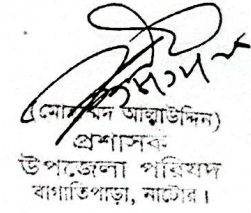 (মোহাম্মদ আলাউদ্দিন)
প্রশাসক
উপজেলা পরিষদ
বাগাতিপাড়া, নাটোর।